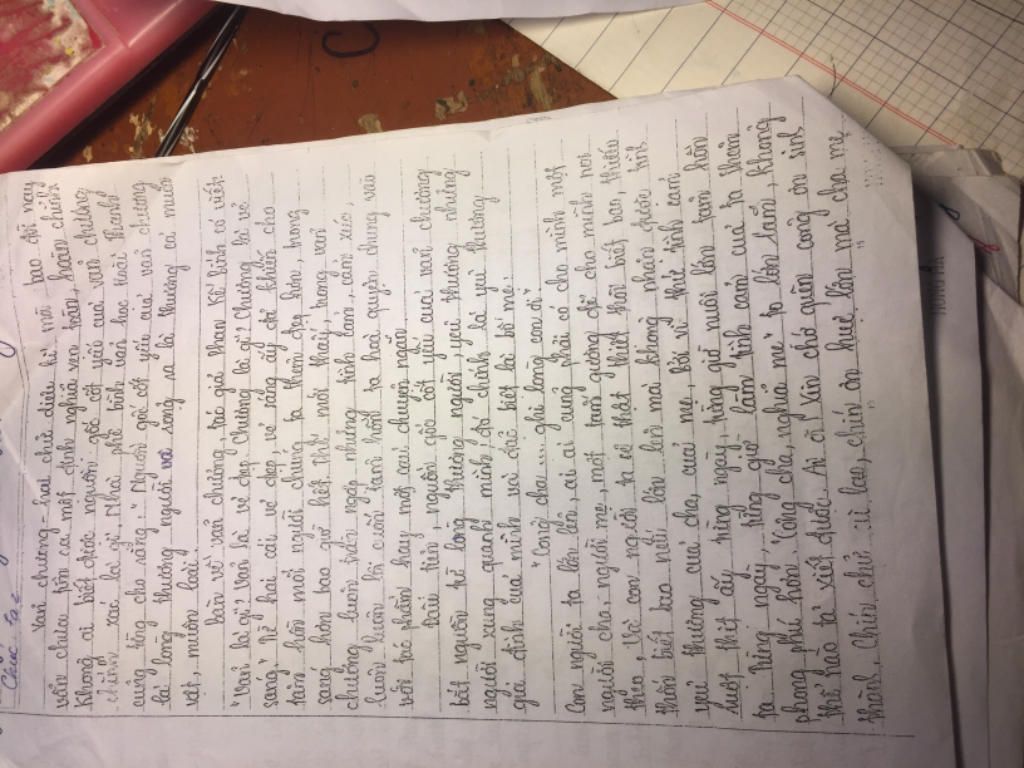 Chúc ta
Văn chương - hai chữ diệu kì mà bao đời nay
vẫn chưa tồn cá một định nghĩa vẹn toàn, hoàn chỉnh
Không ai biết được nguồn gốc cốt yếu của văn chương
chính xác là gì, Nhà phê bình văn học Hoài Thanh
cũng từng cho rằng "Nguồn gốc cốt yếu của văn chương
là lòng thương người và rộng ra là thương cả muôn
vật, muôn loài.
bàn về văn chương, tác giả Phan Kế Bính có viết:
"Văn là gì? Văn là vẻ đẹp. Chương là gì? Chương là vẻ
sáng" Từ hai cái vẻ đẹp, vẻ sáng ấy đã khiến cho
tâm hồn mỗi người chúng ta thêm đẹp hơn, trong
sáng hơn bao giờ hết. Thế mới thấy, trong văn
chương luôn tràn ngập những tình cảm, cảm xúc,
luôn luôn lôi cuốn tâm hồn ta hoà quyện chung với
với tác phẩm hay một câu chuyện ngắn
Đầu tiên, nguồn gốc cốt yếu của văn chương
bắt nguồn từ lòng thương người, yêu thương những
người xung quanh mình đó chính là yêu thương
gia đình của mình và đặc biệt là bố mẹ:
"Công cha ... ghi lòng con ơi"
Con người ta lên đời, ai ai cũng phải có cho mình một
người cha, người mẹ, một tấm gương để cho mình noi
theo, Với con người, ta sẽ thật thiệt thòi biết bao, thiếu
thốn biết bao nếu lớn lên mà không nhận được tình
yêu thương của cha, của mẹ, bởi vì thứ tình cảm
ruột thịt ấy từng ngày, từng giờ nuôi lớn tâm hồn
ta. Từng ngày, từng giờ làm tình cảm của ta thêm
phong phú hơn. "Công cha, nghĩa mẹ" to lớn lắm, không
thể nào tả xiết được. Ai ơi xin chớ quên công ơn sinh
thành, Chín chữ cù lao, chín ân huệ lớn mà cha mẹ